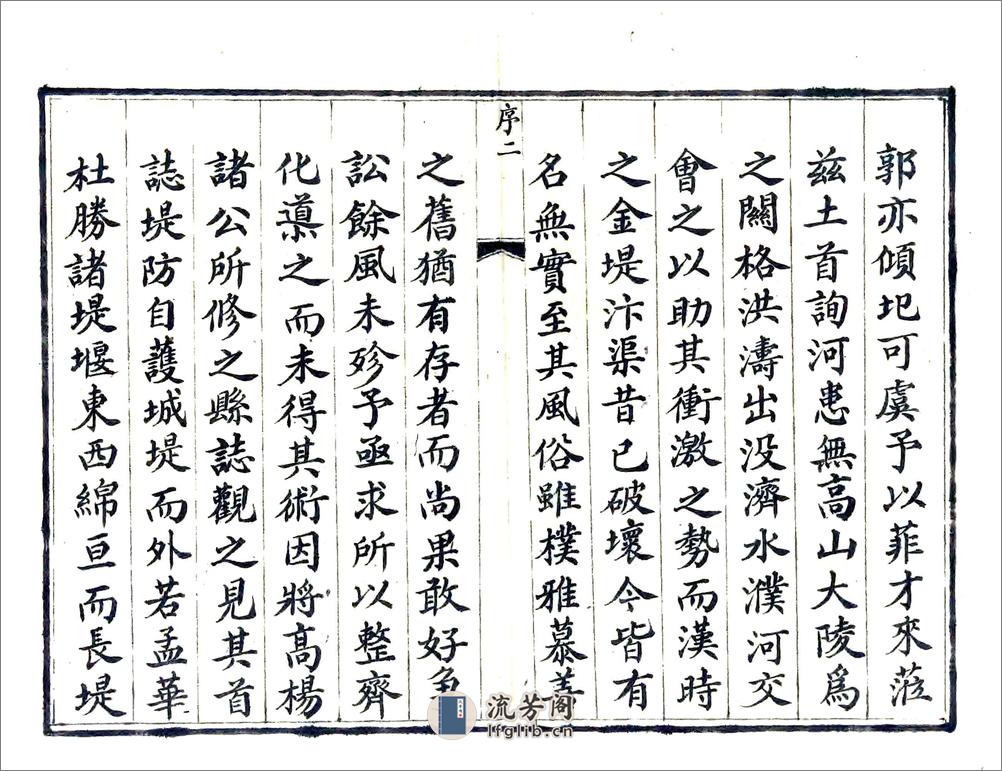 郭亦傾圯可虞予以菲才來蒞
茲土首詢河患無高山大陵爲
之闗格洪濤出没濟水濮河交
會之以助其衝激之勢而漢時
之金堤汴渠昔已破壞今皆有
名無實至其風俗雖樸雅慕善
序二
之舊猶有存者而尚果敢好爭
訟餘風未殄予亟求所以整齊
化導之而未得其術因將高楊
諸公所修之縣誌觀之見其首
誌堤防自護城堤而外若孟華
杜勝諸堤堰東西綿亘而長堤
流芳阁
lfglib.cn